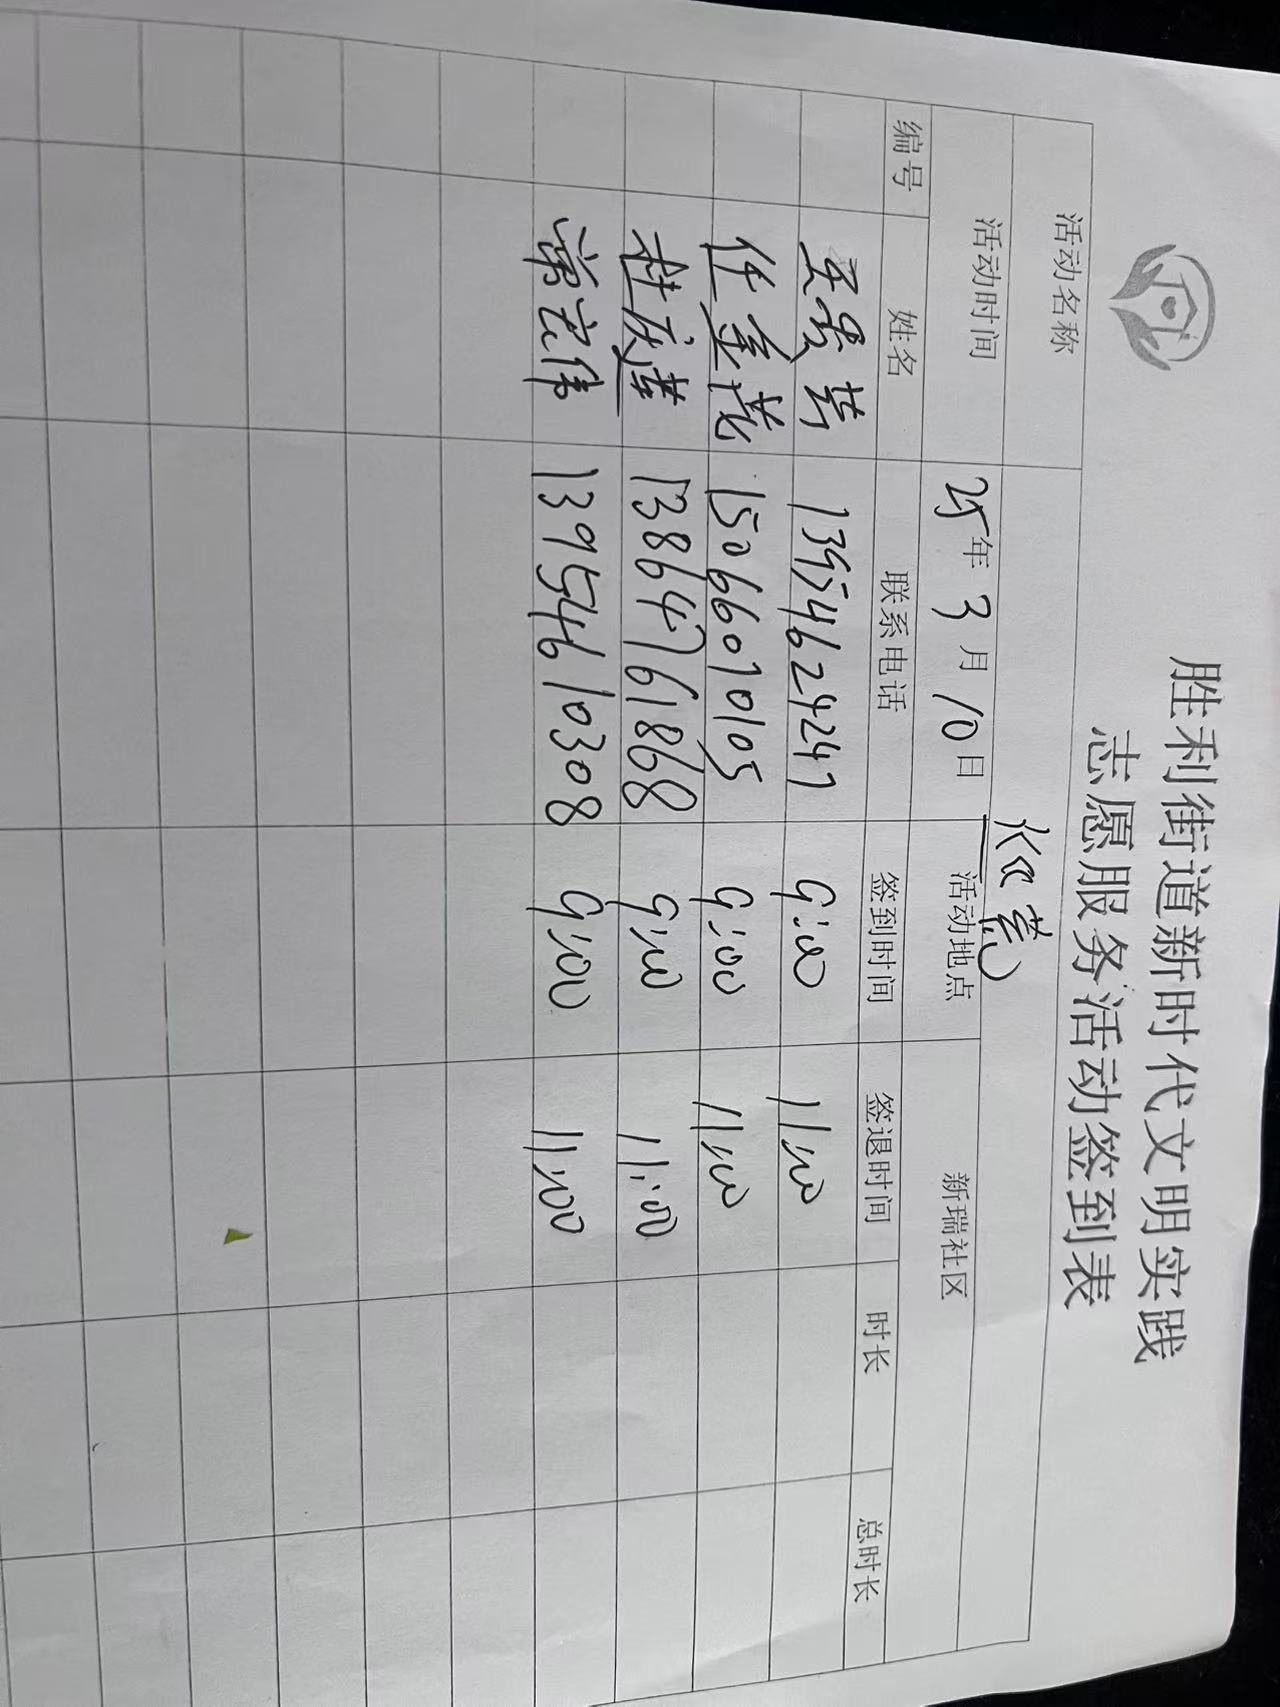 胜利街道新时代文明实践
志愿服务活动签到表
活动名称
活动时间 25年3月10日 活动地点 新瑞社区
编号 姓名 联系电话 签到时间 签退时间 时长 总时长
13954624247 9:00 11:00
任金花 15066070105 9:00 11:00
杜庆莲 13864761868 9:00 11:00
13954610308 9:00 11:00